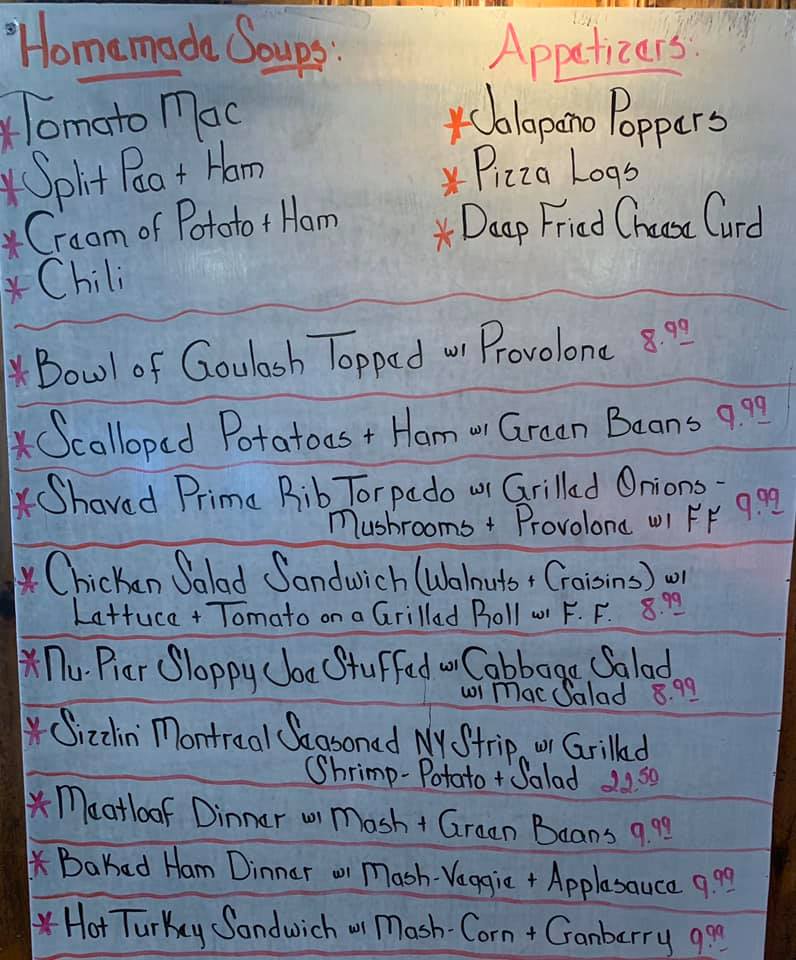 Homemade Soups:
Appetizers:
*Tomato Mac
*Split Pea + Ham
*Cream of Potato + Ham
*Chili
*Jalapaño Poppers
*Pizza Logs
*Deep Fried Cheese Curd
*Bowl of Goulash Topped w/ Provolone 8.99
*Scalloped Potatoes + Ham w/ Green Beans 9.99
*Shaved Prime Rib Torpedo w/ Grilled Onions-
Mushrooms + Provolone w/ FF 9.99
*Chicken Salad Sandwich (Walnuts + Craisins) w/
Lettuce + Tomato on a Grilled Roll w/ F.F. 8.99
*Nu-Pier Sloppy Joe Stuffed w/ Cabbage Salad
w/ Mac Salad 8.99
*Sizzlin' Montreal Seasoned NY Strip w/ Grilled
Shrimp-Potato + Salad 22.50
*Meatloaf Dinner w/ Mash + Green Beans 9.99
*Baked Ham Dinner w/ Mash-Veggie + Applesauce 9.99
*Hot Turkey Sandwich w/ Mash-Corn + Cranberry 9.99